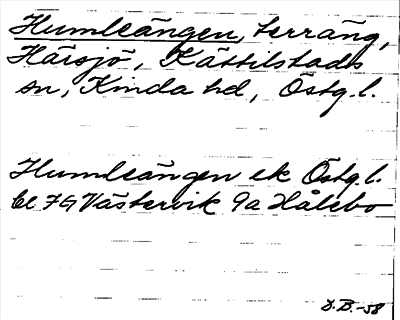 Humleängen, terräng,
Härsjö, Kättilstads
sn, Kinda hd, Östg.l.
Humleängen ek Östg.l.
bl 7G Västervik 9a Hålebo
D.B.-58